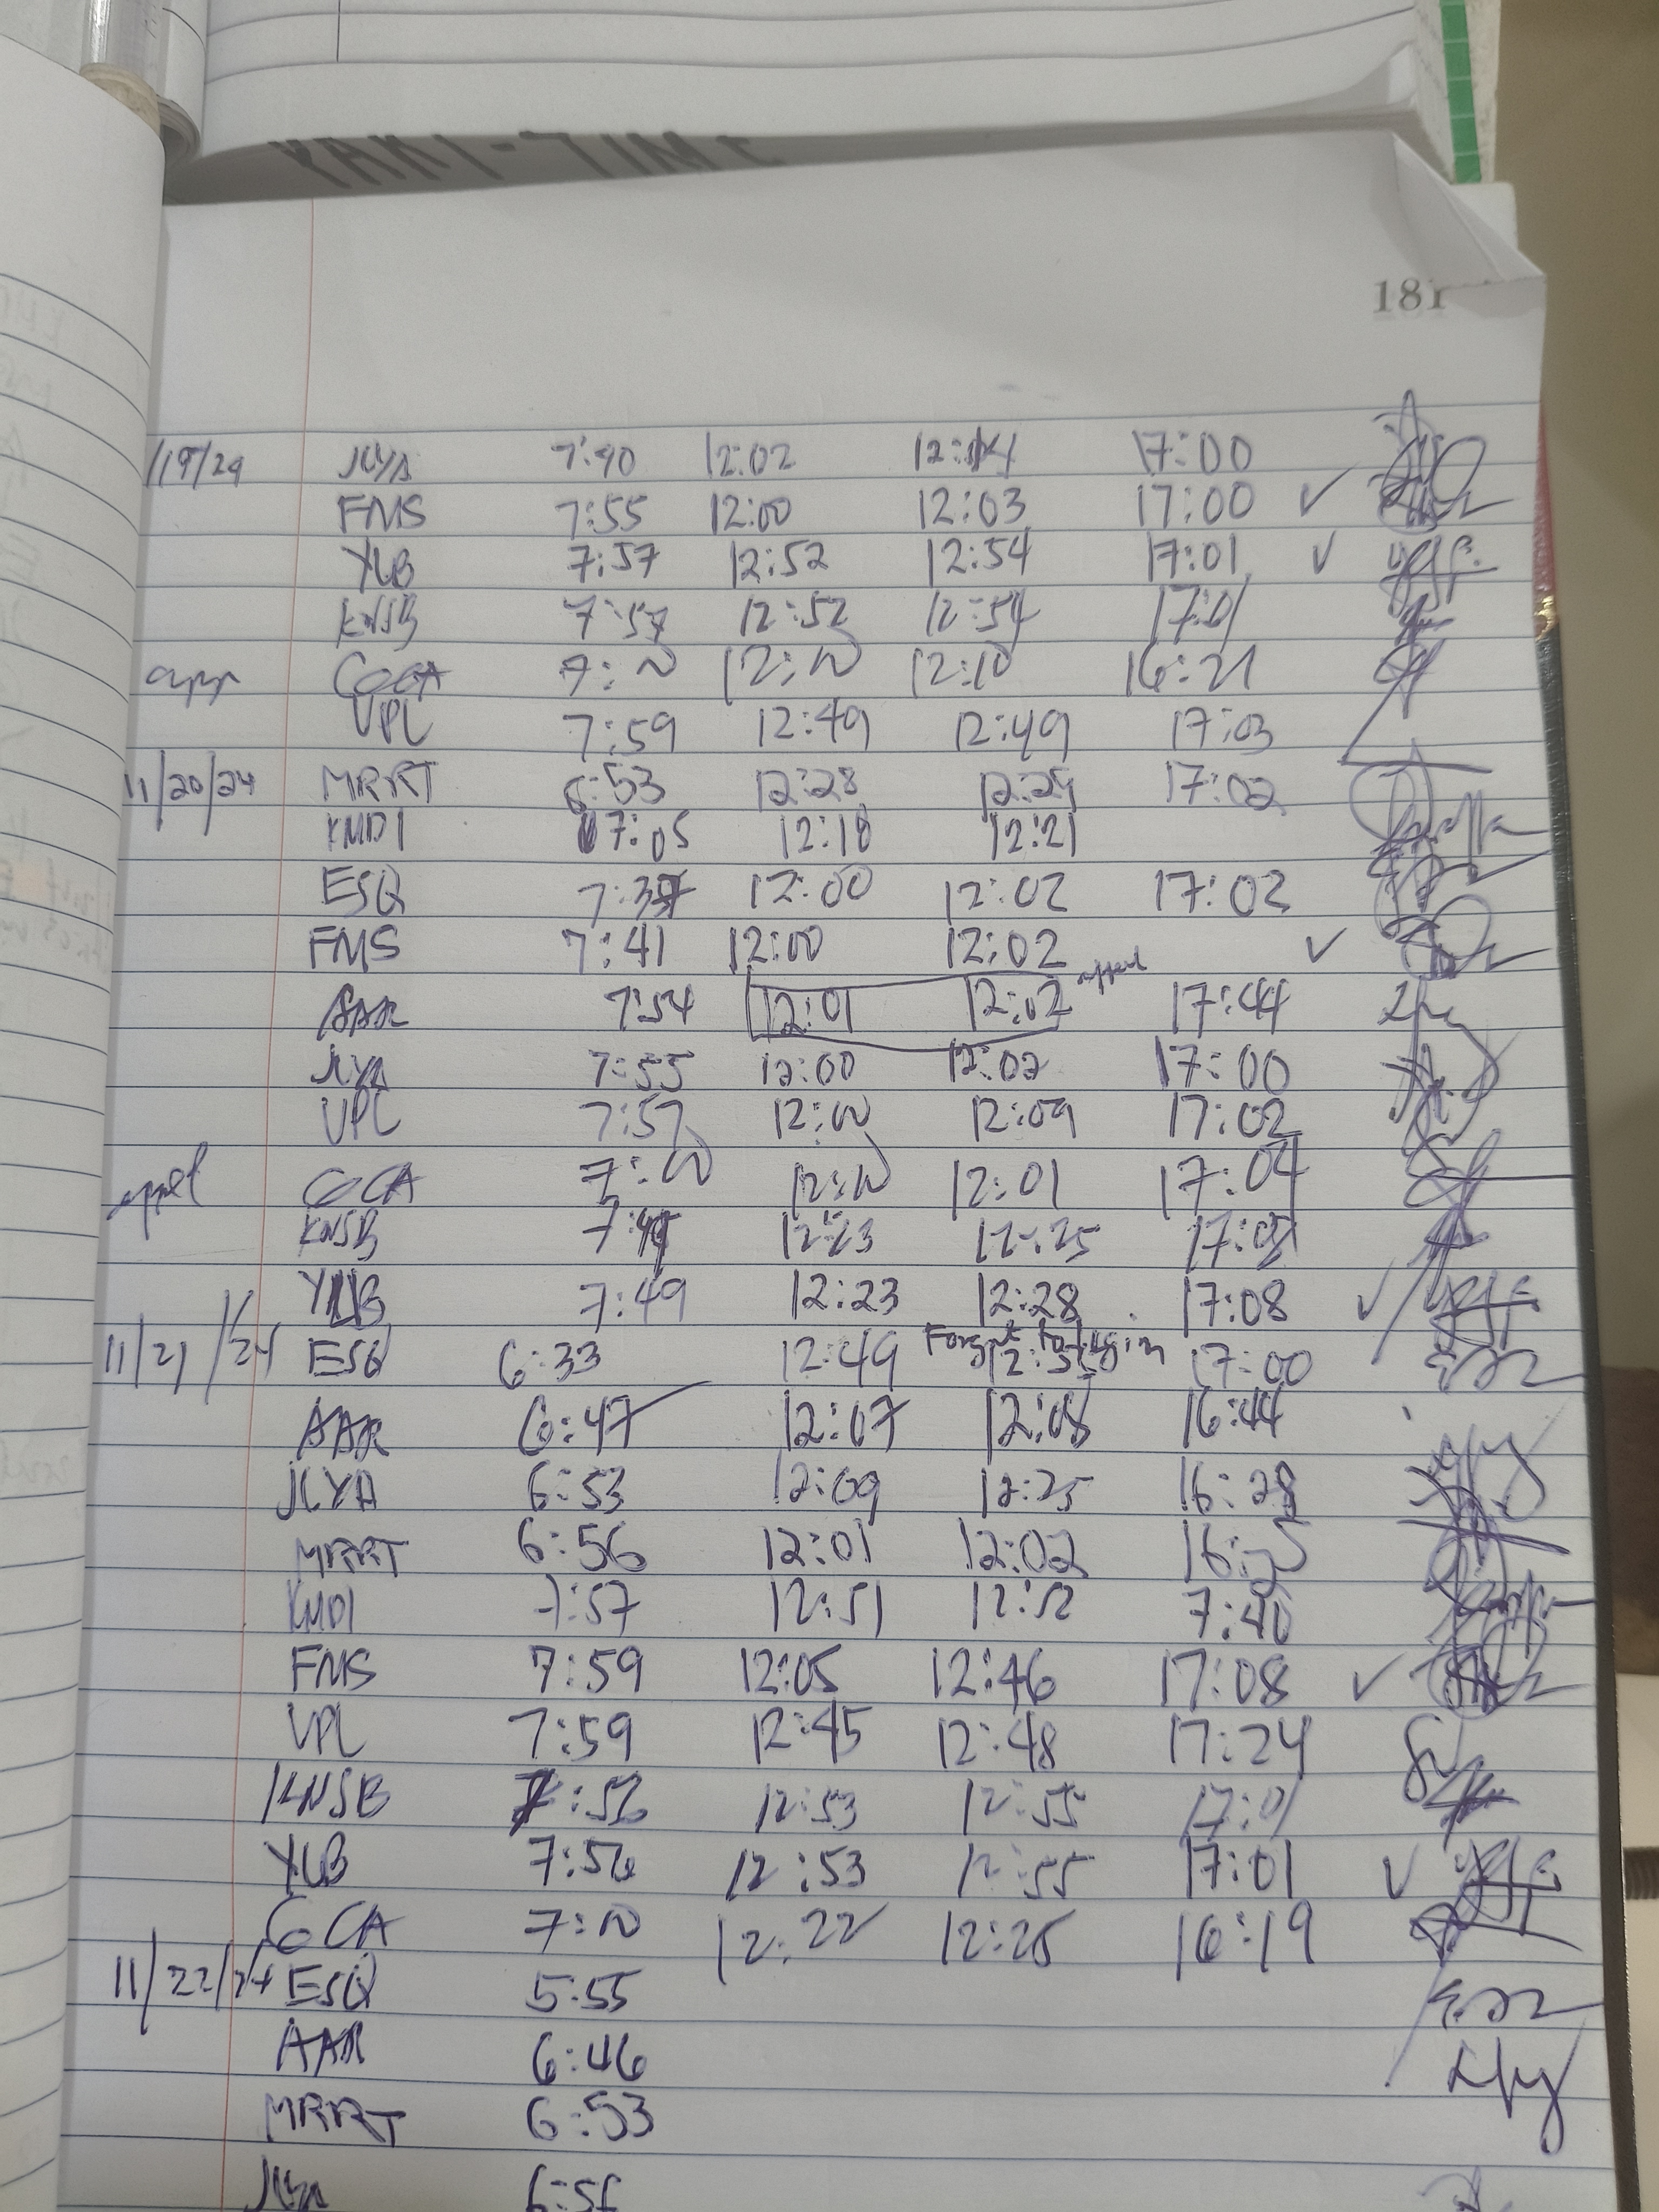 181
/19/24 JLYA 7:40 12:02 12:14 17:00
FMS 7:55 12:00 12:03 17:00 ✓
YLB 7:57 12:52 12:54 17:01 ✓
KNSB 7:57 12:52 12:54 17:01
COCA 12:10 16:21
VPL 7:59 12:49 12:49 17:03
11/20/24 MRRT 6:53 12:28 12:29 17:02
KMDI 7:05 12:18 12:21
ESQ 7:37 12:00 12:02 17:02
FMS 7:41 12:00 12:02 ✓
AAR 7:54 12:01 12:02 17:44
JLYA 7:55 12:00 12:02 17:00
VPL 7:57 12:00 12:09 17:02
COCA 12:01 17:04
KNSB 12:23 12:25
YLB 7:49 12:23 12:28 17:08 ✓
Forgot to log in
11/21/24 ESQ 6:33 12:49 17:00
AAR 6:47 12:07 12:08 16:44
JLYA 6:53 12:09 12:25 16:28
MRRT 6:56 12:01 12:02
KMDI 7:57 12:51 12:52 7:40
FMS 7:59 12:05 12:46 17:08 ✓
VPL 7:59 12:45 12:48 17:24
KNSB 7:56 12:53 12:55 17:01
YLB 7:56 12:53 12:55 17:01 ✓
COCA 12:22 12:25 16:19
11/22/24 ESQ 5:55
AAR 6:46
MRRT 6:53
JLYA